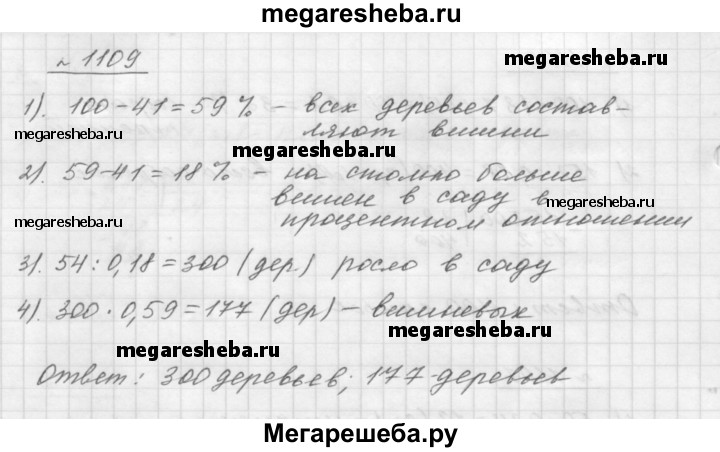 megaresheba.ru
№ 1109
megaresheba.ru
1). 100-41=59% - всех деревьев состав-
megaresheba.ru
ляют вишни
megaresheba.ru
2). 59-41=18% - на столько больше
вишен в саду в
megaresheba.ru
megaresheba.ru
процентном отношении
3). 54:0,18=300 (дер.) росло в саду
4). 300·0,59=177 (дер) - вишневых
megaresheba.ru
megaresheba.ru
Ответ: 300 деревьев; 177 деревьев
Мегарешеба.ру